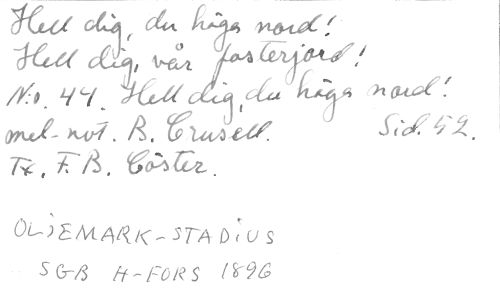 Hell dig, du höga nord!
Hell dig, vår fosterjord!
N:o. 44. Hell dig, du höga nord!
mel-not. B. Crusell. Sid. 52.
Tx. F. B. Cöster.
OLJEMARK-STADIUS
SGB H-FORS 1896